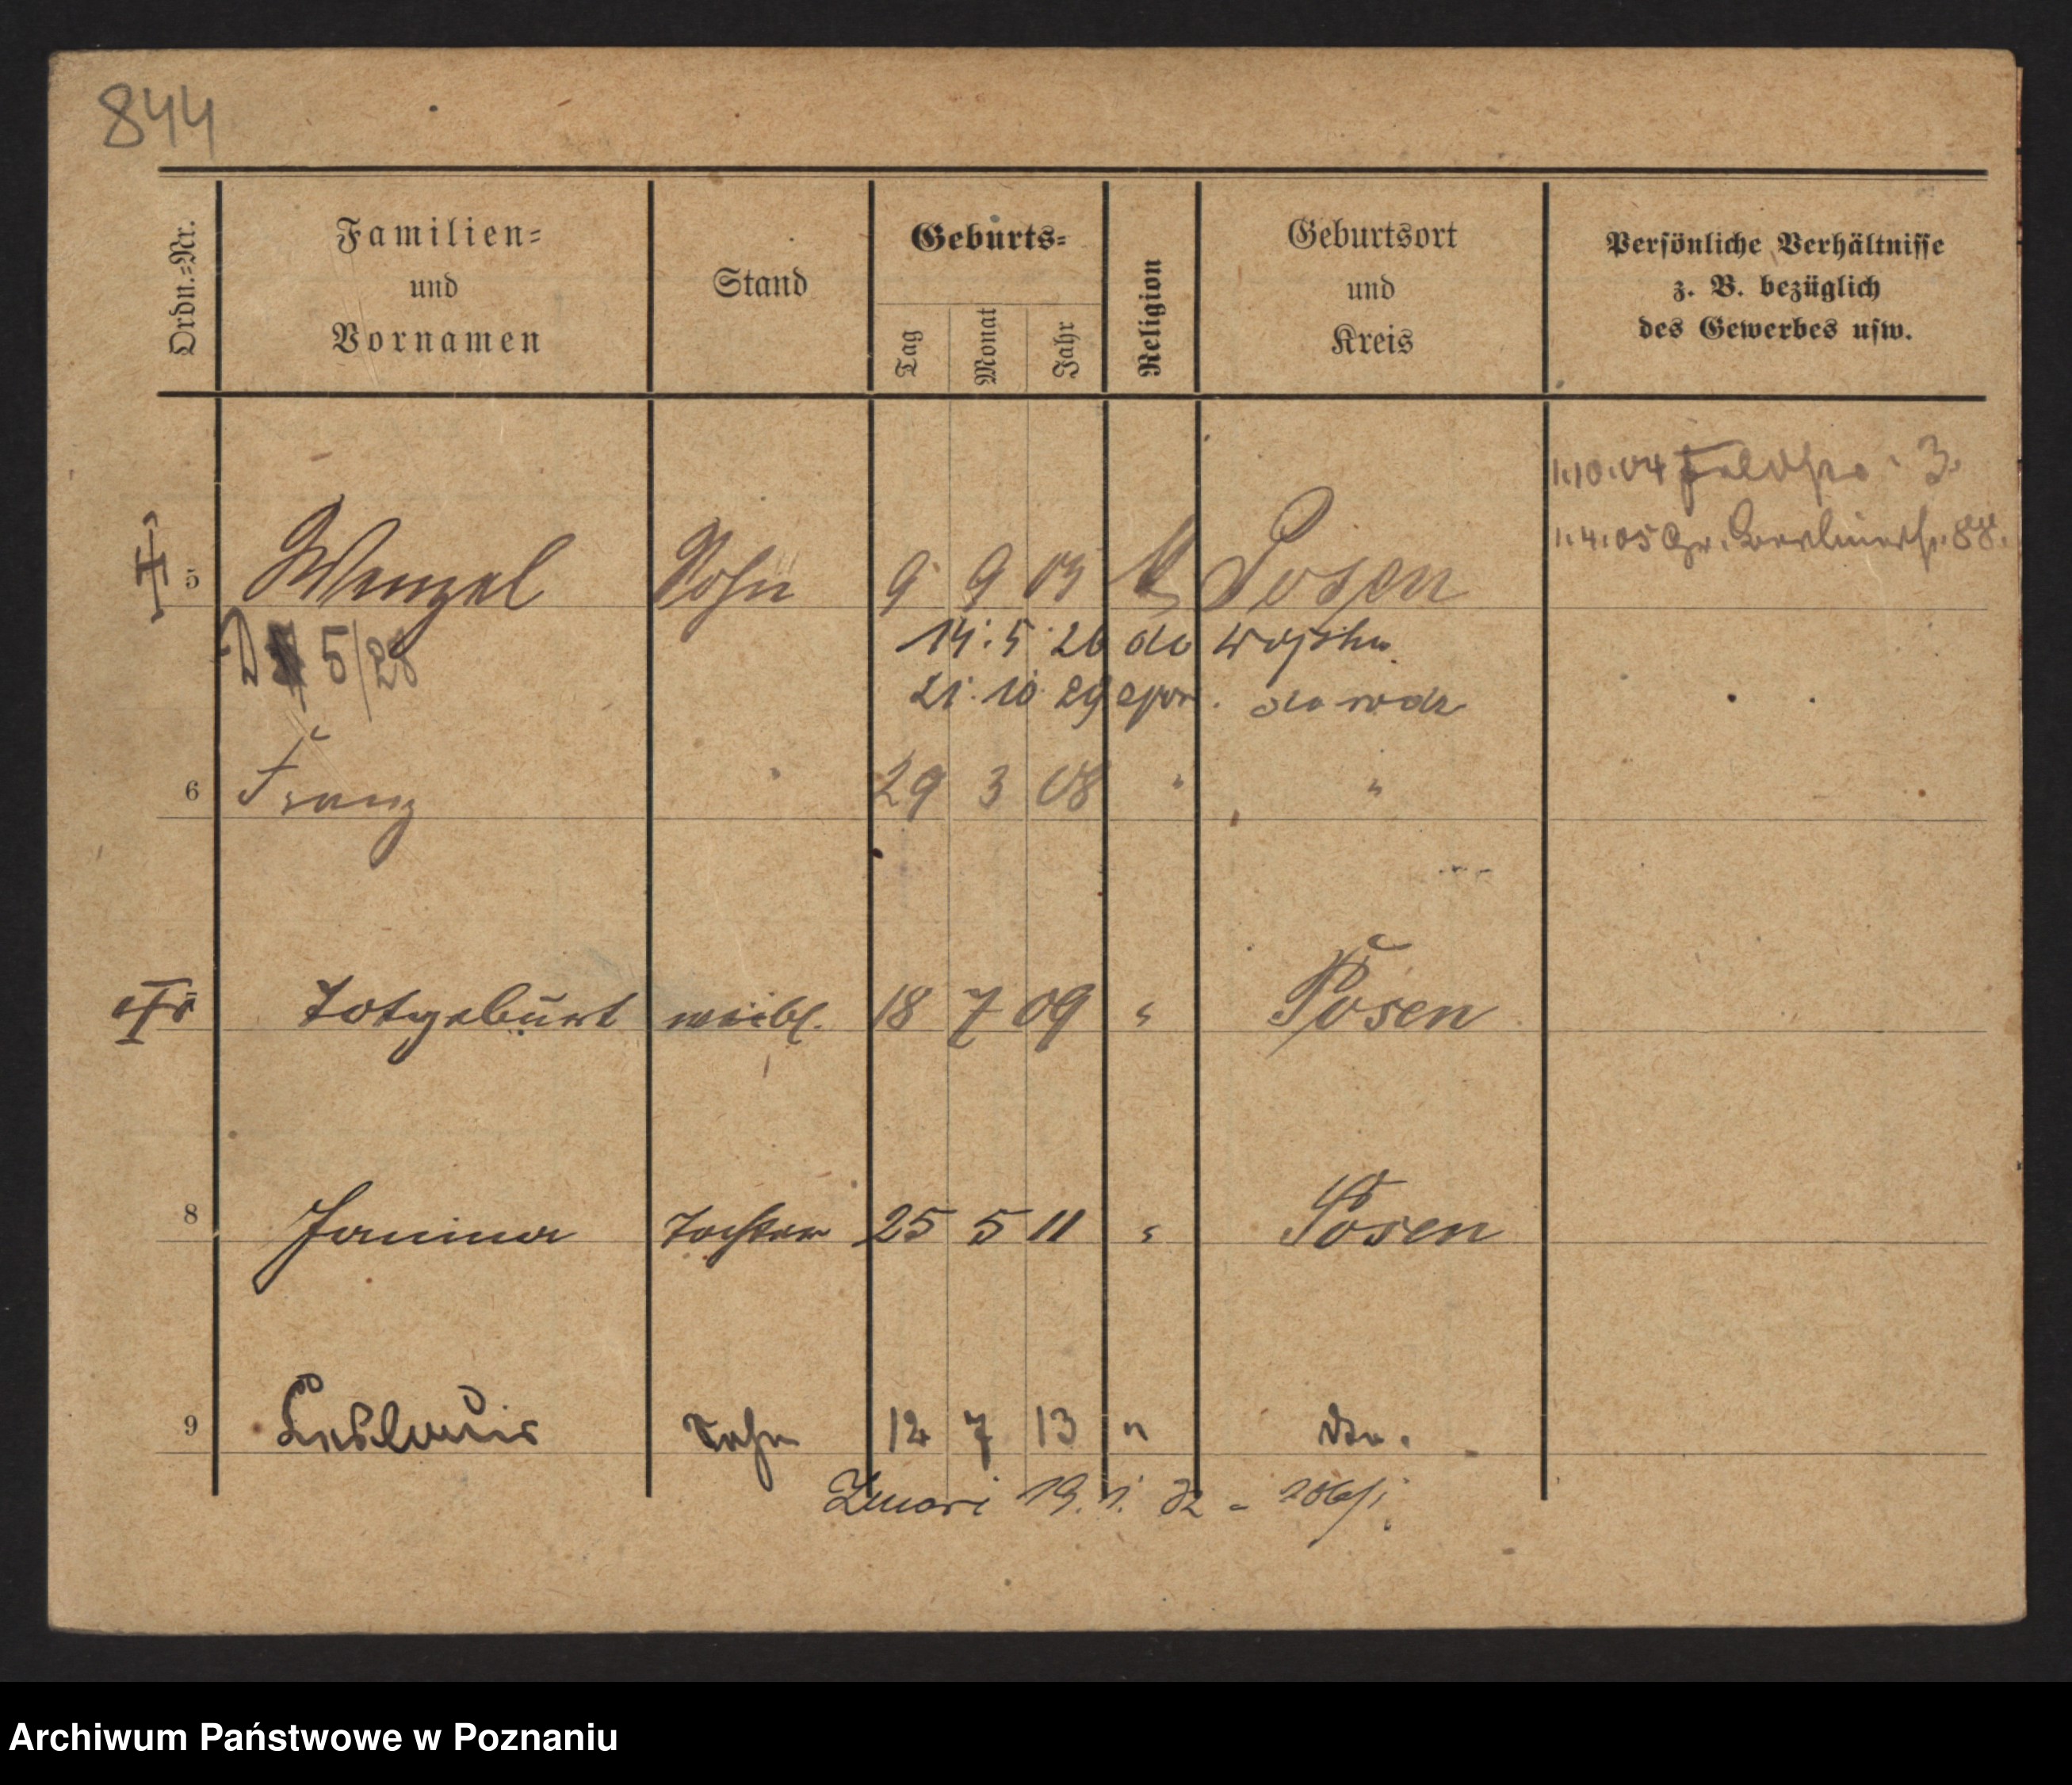 844
Ordn.=Nr.
Familien=
und
Vornamen
Stand
Geburts=
Tag Monat Jahr
Religion
Geburtsort
und
Kreis
Persönliche Verhältnisse
z. B. bezüglich
des Gewerbes usw.
1.10.04 3.
1.4.05 Gr. Berlinerstr. 88.
5 Wenzel Sohn 9 9 03 k Posen
5/28 14.5.26 do wojska
21.10.29 do rodz
6 Franz 29 3 08 " "
Totgeburt weibl. 18 7 09 " Posen
8 Janina Tochter 25 5 11 " Posen
9 Ladislaus Sohn 12 7 13 " do.
19.1.32 -
Archiwum Państwowe w Poznaniu